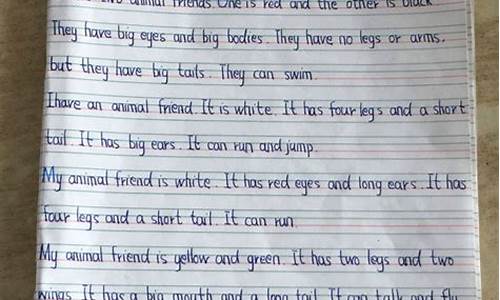 two animal friends. One is red and the other is black
They have big eyes and big bodies. They have no legs or arms.
but they have big tails. They can swim.
Ihave an animal friend. It is white. It has four legs and a short
tail. It has big ears. It can run and jump.
My animal friend is white. It has red eyes and long ears. It has
four legs and a short tail. It can run.
My animal friend is yellow and green. It has two legs and two
wings. It has a big mouth and a long tail. It can talk and fly